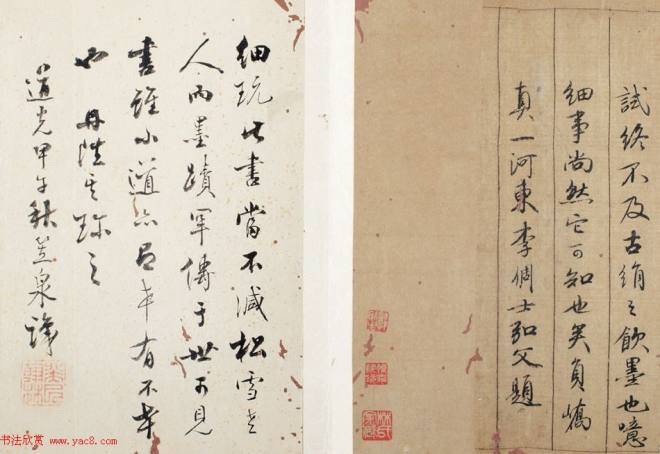 試終不及古絹之飲墨也噫
細事尚然它可知也矣貞嶠
真一河東李倜士弘父題
細玩此書當不減松雪老
人而墨蹟罕傳于世可見
書雖小道亦有幸有不幸
也丹陛其珍之
道光甲午秋笠泉識
书法欣赏 www.yac8.com